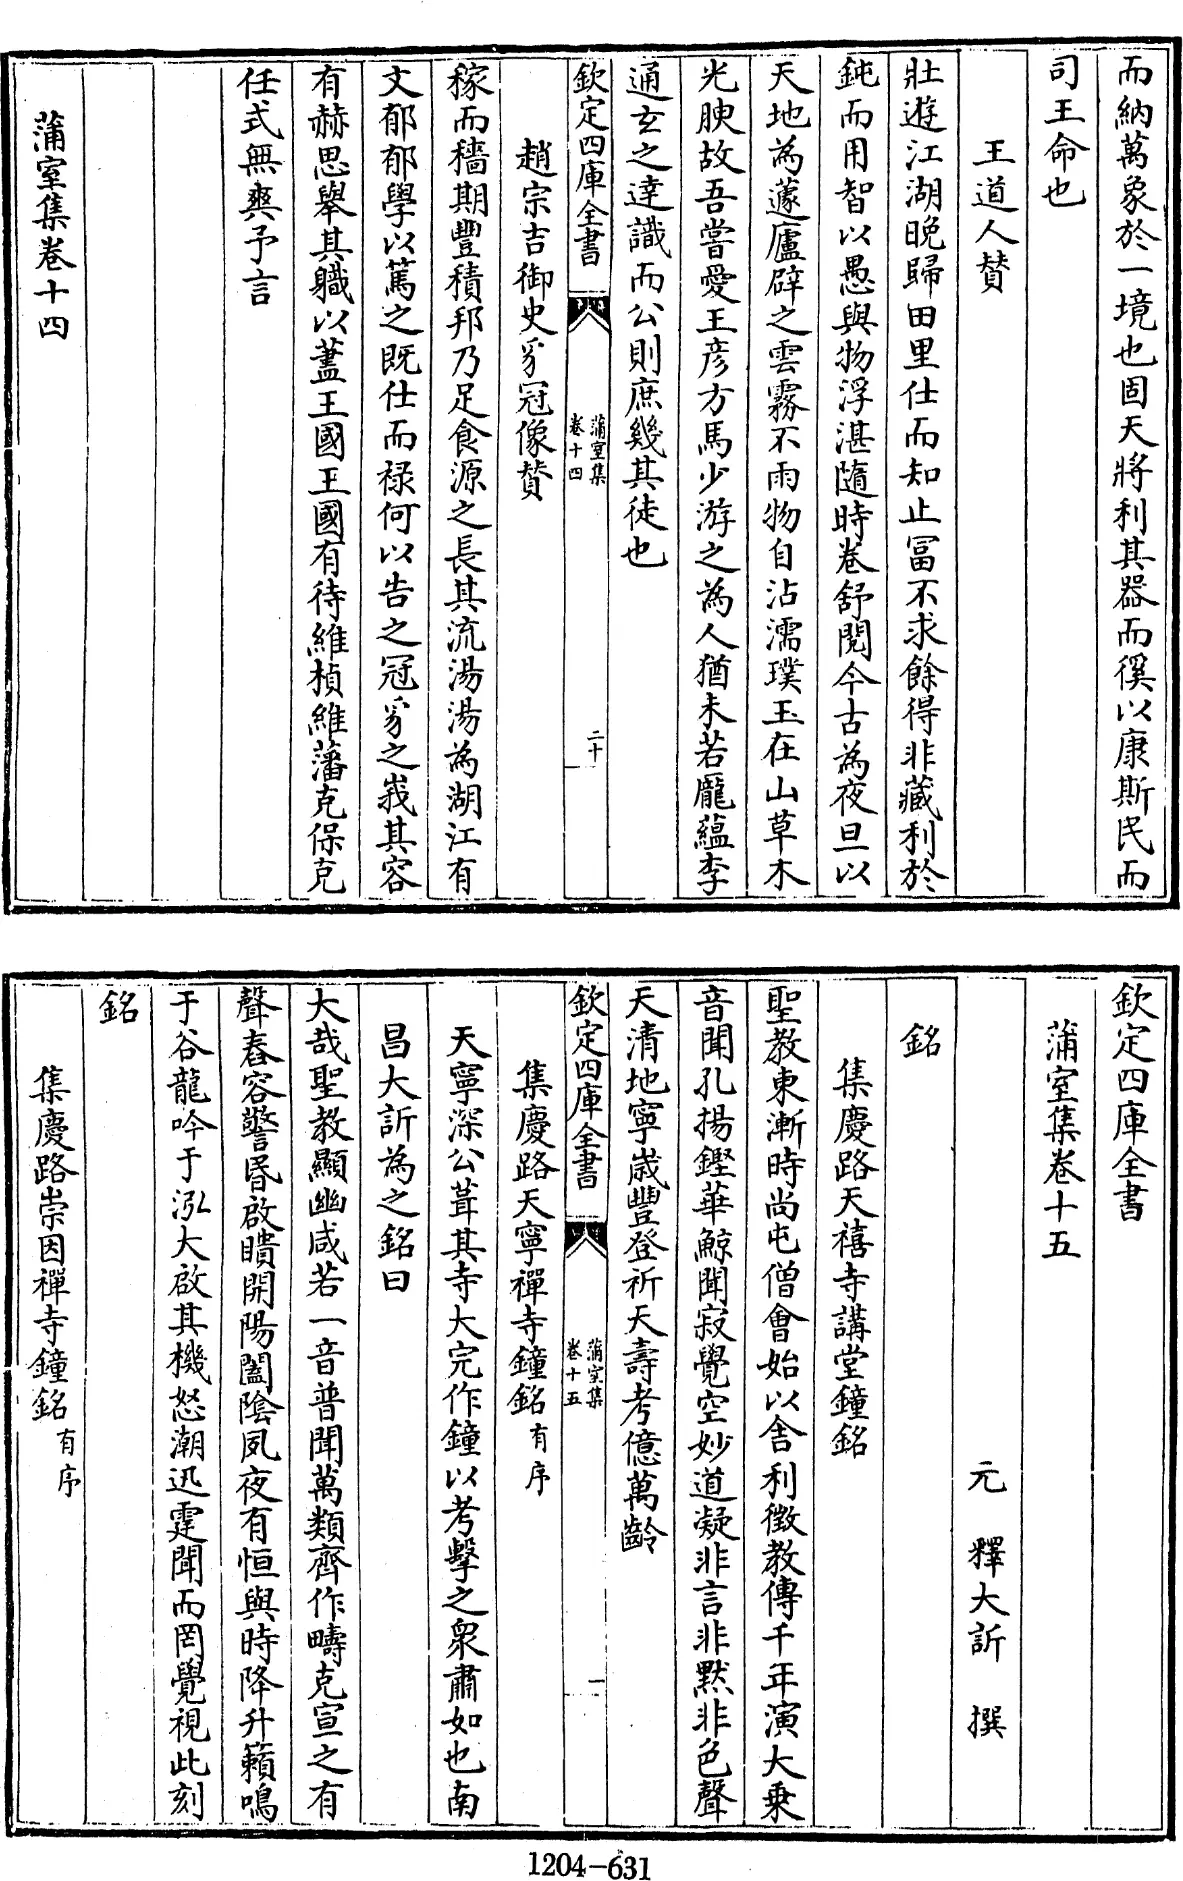 而納萬象於一境也固天將利其器而徯以康斯民而
司王命也
王道人贊
壯遊江湖晚歸田里仕而知止富不求餘得非藏利於
鈍而用智以愚與物浮湛隨時卷舒閱今古為夜旦以
天地為蘧廬辟之雲霧不雨物自沾濡璞玉在山草木
光腴故吾嘗愛王彥方馬少游之為人猶未若龐蘊李
通玄之達識而公則庶幾其徒也
欽定四庫全書
蒲室集
卷十四
二十
趙宗吉御史豸冠像贊
稼而穡期豐積邦乃足食源之長其流湯湯為湖江有
文郁郁學以篤之既仕而祿何以告之冠豸之峩其容
有赫思舉其職以藎王國王國有待維楨維藩克保克
任式無爽予言
蒲室集卷十四
欽定四庫全書
蒲室集卷十五
元 釋大訢 撰
銘
集慶路天禧寺講堂鐘銘
聖教東漸時尚屯僧會始以舍利徵教傳千年演大乗
音聞孔揚鏗華鯨聞寂覺空妙道凝非言非默非色聲
天清地寧歲豐登祈天壽考億萬齡
欽定四庫全書
蒲室集
卷十五
一
集慶路天寧禪寺鐘銘有序
天寧深公葺其寺大完作鐘以考擊之衆肅如也南
昌大訢為之銘曰
大哉聖教顯幽咸若一音普聞萬類齊作疇克宣之有
聲舂容警昬啟瞶開陽闔陰夙夜有恒與時降升籟鳴
于谷龍吟于泓大啟其機怒潮迅霆聞而罔覺視此刻
銘
集慶路崇因禪寺鐘銘有序
1204-631